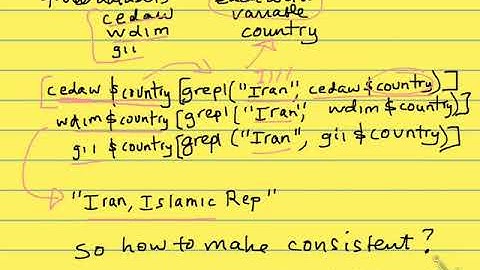 cedaw
variable
wdim
country
gii
cedaw $country[grepl("Iran", cedaw$country)]
wdim $country[grepl("Iran", wdim$country)]
gii $country[grepl ("Iran", gii $country)]
"Iran, Islamic Rep"
so how to make consistent?